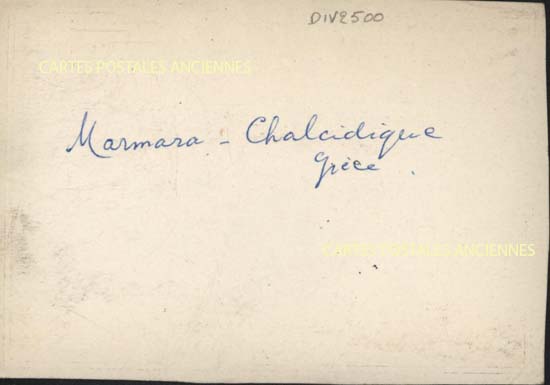 DIV2500
CARTES POSTALES ANCIENNES
Marmara - Chalcidique
Grèce.
CARTES POSTALES ANCIENNES